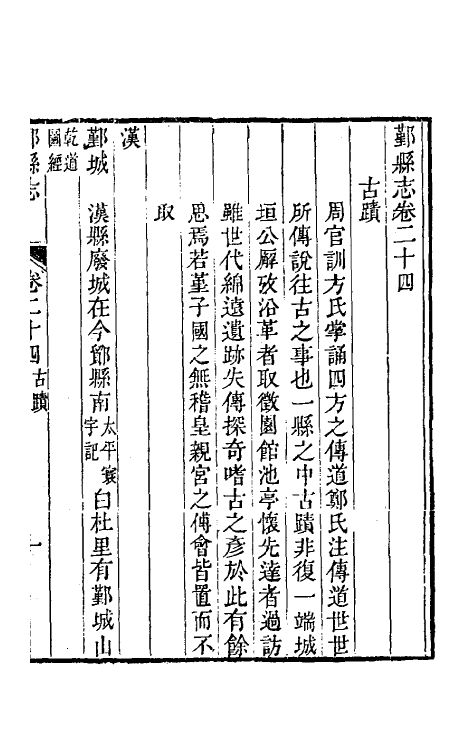 鄞縣志卷二十四
古蹟
周官訓方氏掌誦四方之傳道鄭氏注傳道世世
所傳說往古之事也一縣之中古蹟非復一端城
垣公廨攷沿革者取徵園館池亭懷先達者過訪
雖世代綿遠遺跡失傳探奇嗜古之彥於此有餘
思焉若堇子國之無稽皇親宮之傅會皆置而不
取
漢
鄞城 漢縣廢城在今鄮縣南太平寰宇記白杜里有鄞城山
乾道圖經
鄞縣志 卷二十四 古蹟 一